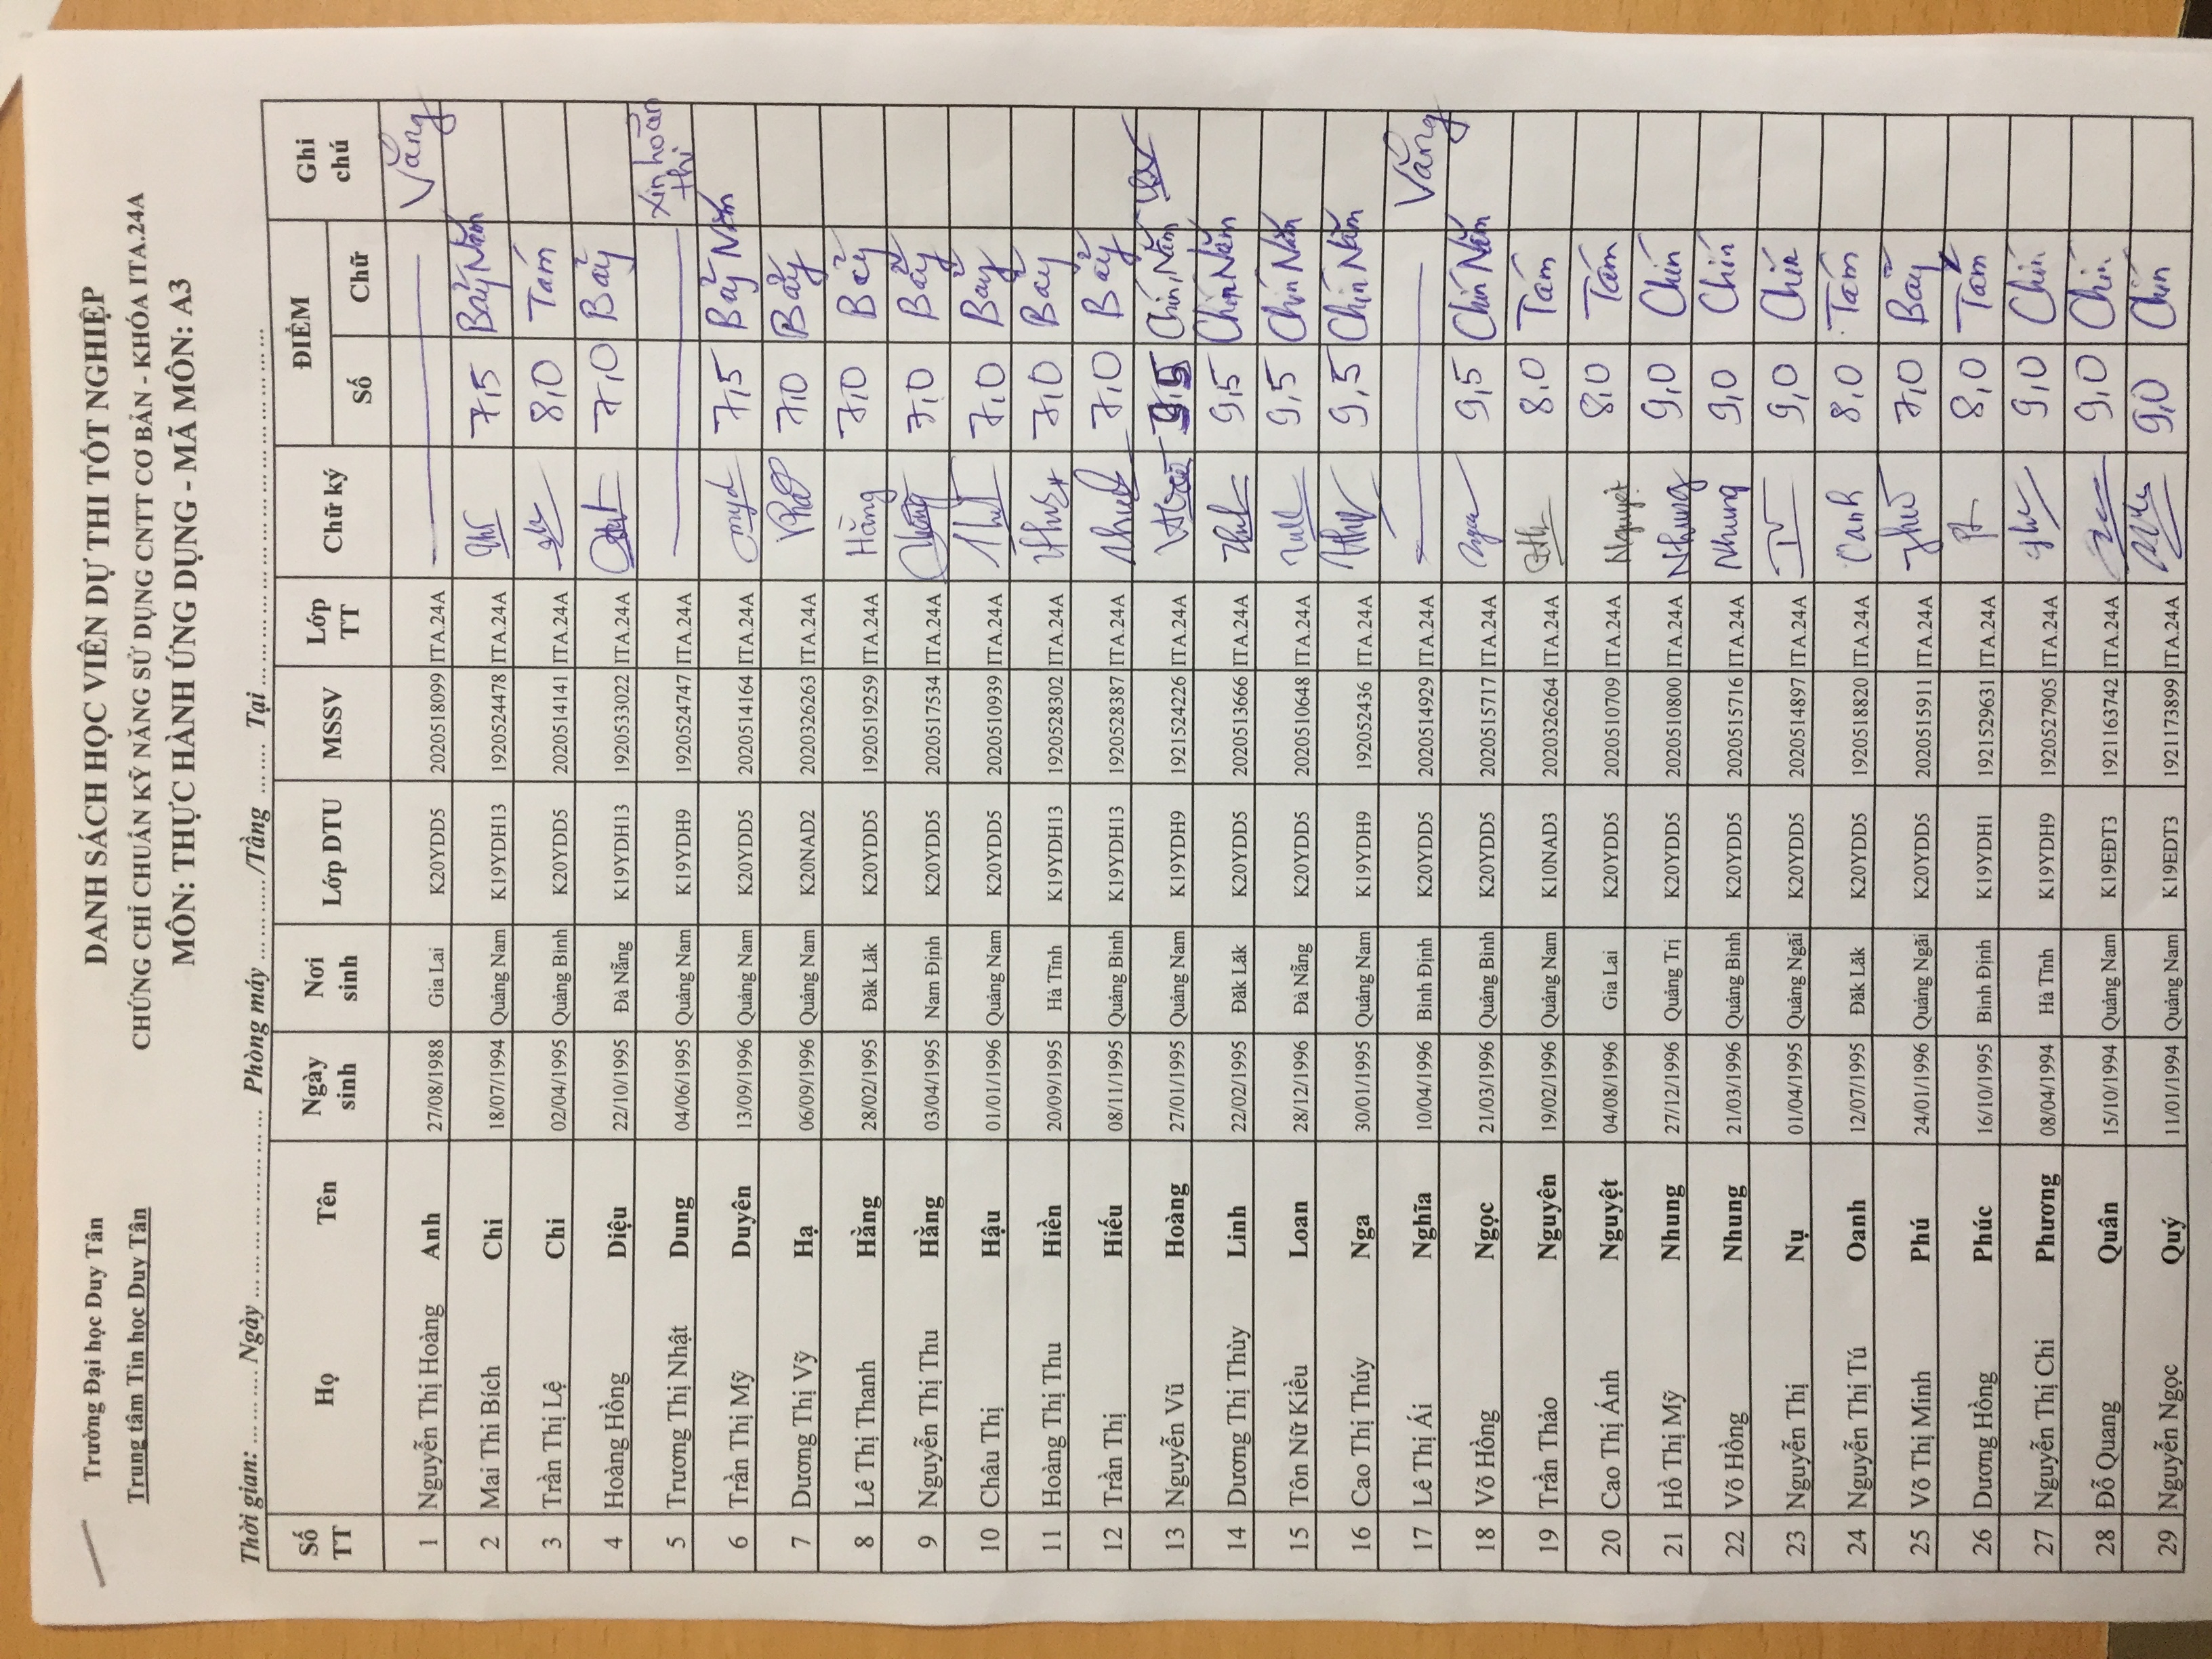 Trường Đại học Duy Tân
Trung tâm Tin học Duy Tân
DANH SÁCH HỌC VIÊN DỰ THI TỐT NGHIỆP
CHỨNG CHỈ CHUẨN KỸ NĂNG SỬ DỤNG CNTT CƠ BẢN - KHÓA ITA.24A
MÔN: THỰC HÀNH ỨNG DỤNG - MÃ MÔN: A3
Thời gian: ... ... .... Ngày ... ... ... ... ... ... Phòng máy ... ... ... .../Tầng ... ... ... Tại ... ... ... ... ... ... ... ... ... ... ...
Số TT Họ Tên Ngày sinh Nơi sinh Lớp DTU MSSV Lớp TT Chữ ký ĐIỂM Ghi chú
Số Chữ
1 Nguyễn Thị Hoàng Anh 27/08/1988 Gia Lai K20YDD5 2020518099 ITA.24A Vắng
2 Mai Thi Bích Chi 18/07/1994 Quảng Nam K19YDH13 1920524478 ITA.24A 7,5 Bảy Năm
3 Trần Thị Lệ Chi 02/04/1995 Quảng Bình K20YDD5 2020514141 ITA.24A 8,0 Tám
4 Hoàng Hồng Diệu 22/10/1995 Đà Nẵng K19YDH13 1920533022 ITA.24A 7,0 Bảy
5 Trương Thị Nhật Dung 04/06/1995 Quảng Nam K19YDH9 1920524747 ITA.24A Xin hoãn thi
6 Trần Thị Mỹ Duyên 13/09/1996 Quảng Nam K20YDD5 2020514164 ITA.24A 7,5 Bảy Năm
7 Dương Thị Vỹ Hạ 06/09/1996 Quảng Nam K20NAD2 2020326263 ITA.24A 7,0 Bảy
8 Lê Thị Thanh Hằng 28/02/1995 Đăk Lăk K20YDD5 1920519259 ITA.24A Hằng 7,0 Bảy
9 Nguyễn Thị Thu Hằng 03/04/1995 Nam Định K20YDD5 2020517534 ITA.24A 7,0 Bảy
10 Châu Thị Hậu 01/01/1996 Quảng Nam K20YDD5 2020510939 ITA.24A 7,0 Bảy
11 Hoàng Thị Thu Hiền 20/09/1995 Hà Tĩnh K19YDH13 1920528302 ITA.24A 7,0 Bảy
12 Trần Thị Hiếu 08/11/1995 Quảng Bình K19YDH13 1920528387 ITA.24A 7,0 Bảy
13 Nguyễn Vũ Hoàng 27/01/1995 Quảng Nam K19YDH9 1921524226 ITA.24A 9,5 Chín, Năm
14 Dương Thị Thùy Linh 22/02/1995 Đăk Lăk K20YDD5 2020513666 ITA.24A 9,5 Chín Năm
15 Tôn Nữ Kiều Loan 28/12/1996 Đà Nẵng K20YDD5 2020510648 ITA.24A 9,5 Chín Năm
16 Cao Thị Thúy Nga 30/01/1995 Quảng Nam K19YDH9 192052436 ITA.24A 9,5 Chín Năm
17 Lê Thị Ái Nghĩa 10/04/1996 Bình Định K20YDD5 2020514929 ITA.24A Vắng
18 Võ Hồng Ngọc 21/03/1996 Quảng Bình K20YDD5 2020515717 ITA.24A 9,5 Chín Năm
19 Trần Thảo Nguyên 19/02/1996 Quảng Nam K10NAD3 2020326264 ITA.24A 8,0 Tám
20 Cao Thị Ánh Nguyệt 04/08/1996 Gia Lai K20YDD5 2020510709 ITA.24A Nguyệt 8,0 Tám
21 Hồ Thị Mỹ Nhung 27/12/1996 Quảng Trị K20YDD5 2020510800 ITA.24A Nhung 9,0 Chín
22 Võ Hồng Nhung 21/03/1996 Quảng Bình K20YDD5 2020515716 ITA.24A Nhung 9,0 Chín
23 Nguyễn Thị Nụ 01/04/1995 Quảng Ngãi K20YDD5 2020514897 ITA.24A 9,0 Chín
24 Nguyễn Thị Tú Oanh 12/07/1995 Đăk Lăk K20YDD5 1920518820 ITA.24A Oanh 8,0 Tám
25 Võ Thị Minh Phú 24/01/1996 Quảng Ngãi K20YDD5 2020515911 ITA.24A 7,0 Bảy
26 Dương Hồng Phúc 16/10/1995 Bình Định K19YDH1 1921529631 ITA.24A 8,0 Tám
27 Nguyễn Thị Chi Phương 08/04/1994 Hà Tĩnh K19YDH9 1920527905 ITA.24A 9,0 Chín
28 Đỗ Quang Quân 15/10/1994 Quảng Nam K19EĐT3 1921163742 ITA.24A 9,0 Chín
29 Nguyễn Ngọc Quý 11/01/1994 Quảng Nam K19EDT3 1921173899 ITA.24A 9,0 Chín